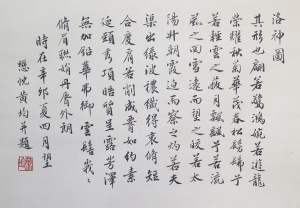 洛神圖
其形也翩若驚鴻婉若遊龍
榮耀秋菊華茂春松髣髴兮
若輕雲之蔽月飄飖兮若流
風之回雪遠而望之皎若太
陽升朝霞迫而察之灼若芙
渠出淥波穠纖得衷脩短
合度肩若削成腰如約素
延頸秀項皓質呈露芳澤
無加鉛華弗御雲髻峩〻
脩眉聯娟丹脣外朗
時在辛卯夏四月望
懋忱黃均并題